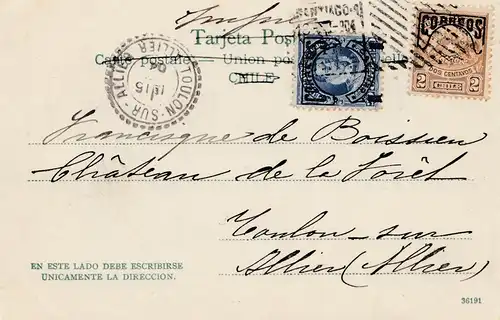 Tarjeta Pos
Carte postale — Union pos
CHILE
CORREOS
2
DOS CENTAVOS
2
CHILE
TOULON-SUR-ALLIER
ALLIER
Francisque de Boissieu
Château de la Forêt
Toulon-sur
Allier (Allier)
EN ESTE LADO DEBE ESCRIBIRSE
UNICAMENTE LA DIRECCION.
36191